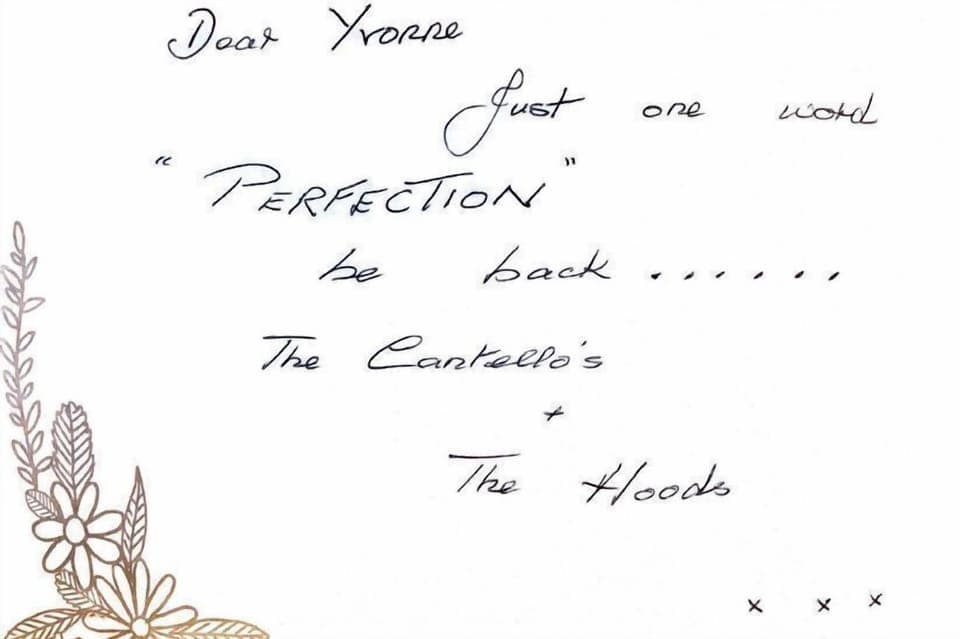 Dear Yvonne
Just one word
"PERFECTION"
be back ......
The Cantello's
+
The Hoods
x x x